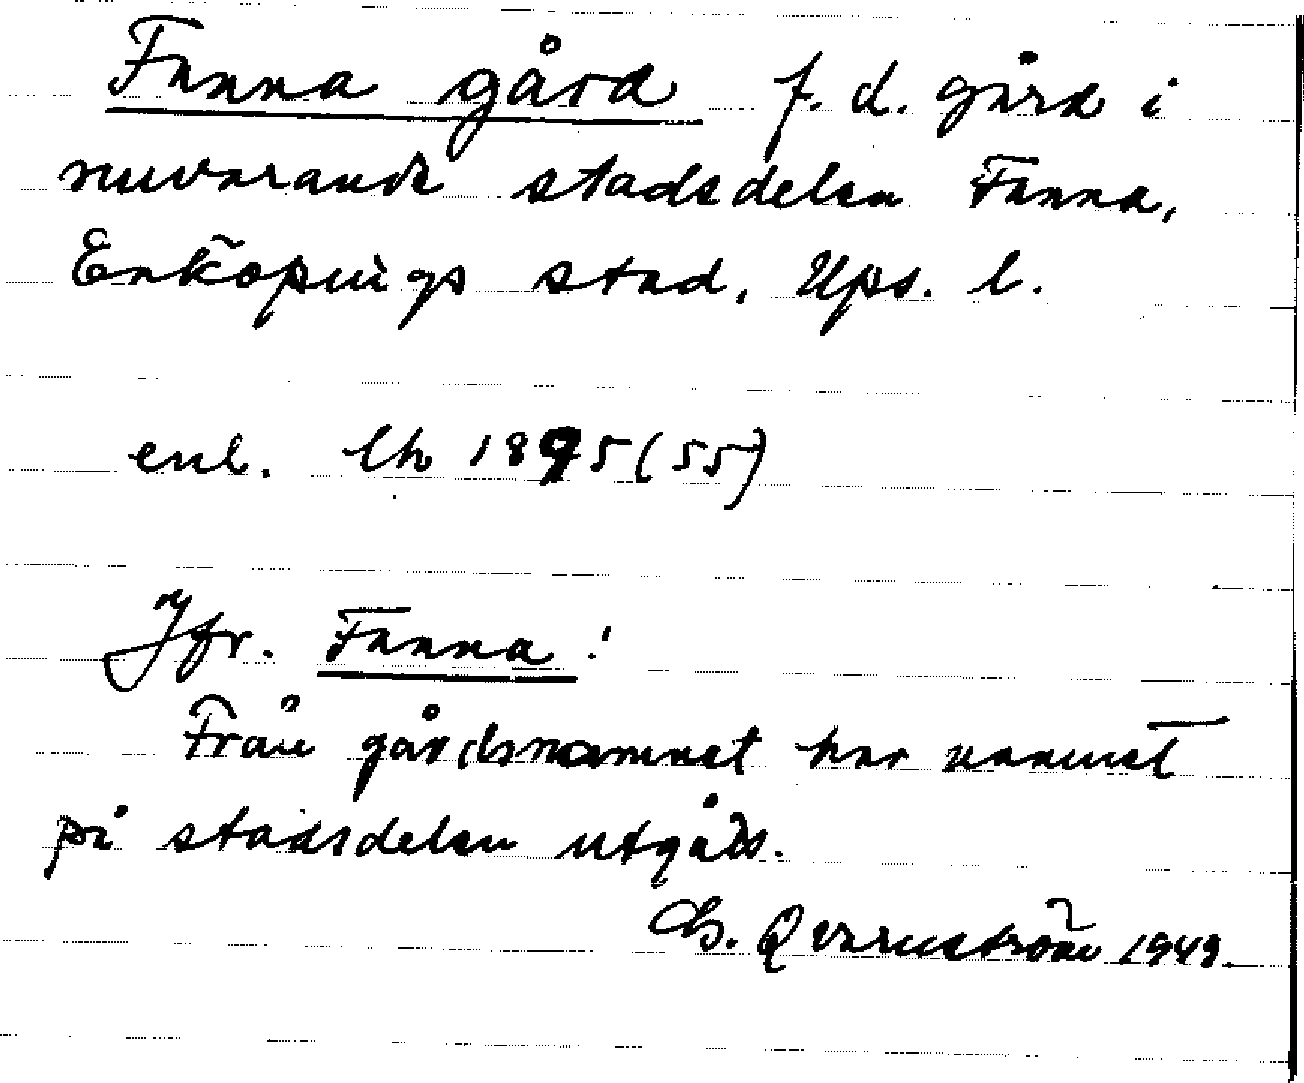 Fanna gård f. d. gård i
nuvarande stadsdelen Fanna,
Enköpings stad, Ups. l.
enl. lh 1895 (55)
Jfr. Fanna!
Från gårdsnamnet har namnet
på stadsdelen utgått.
G. Qvarnström 1949.